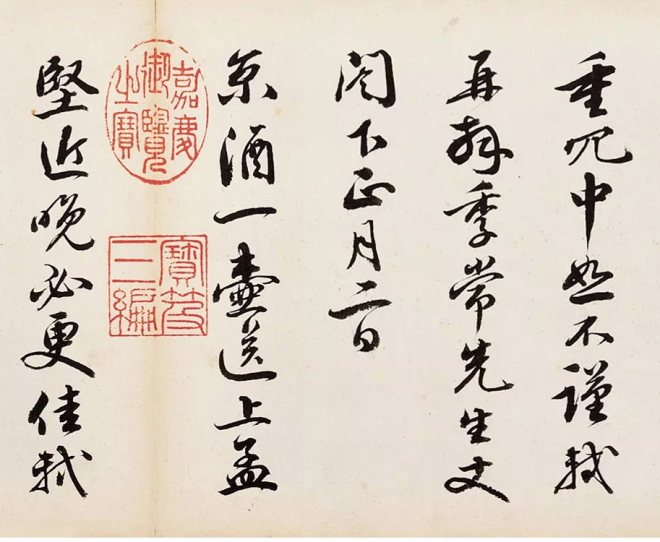 重冗中恕不謹軾
再拜季常先生丈
閤下正月二日
京酒一壺送上孟
嘉慶御覽之寶
寶笈三編
堅近晚必更佳軾